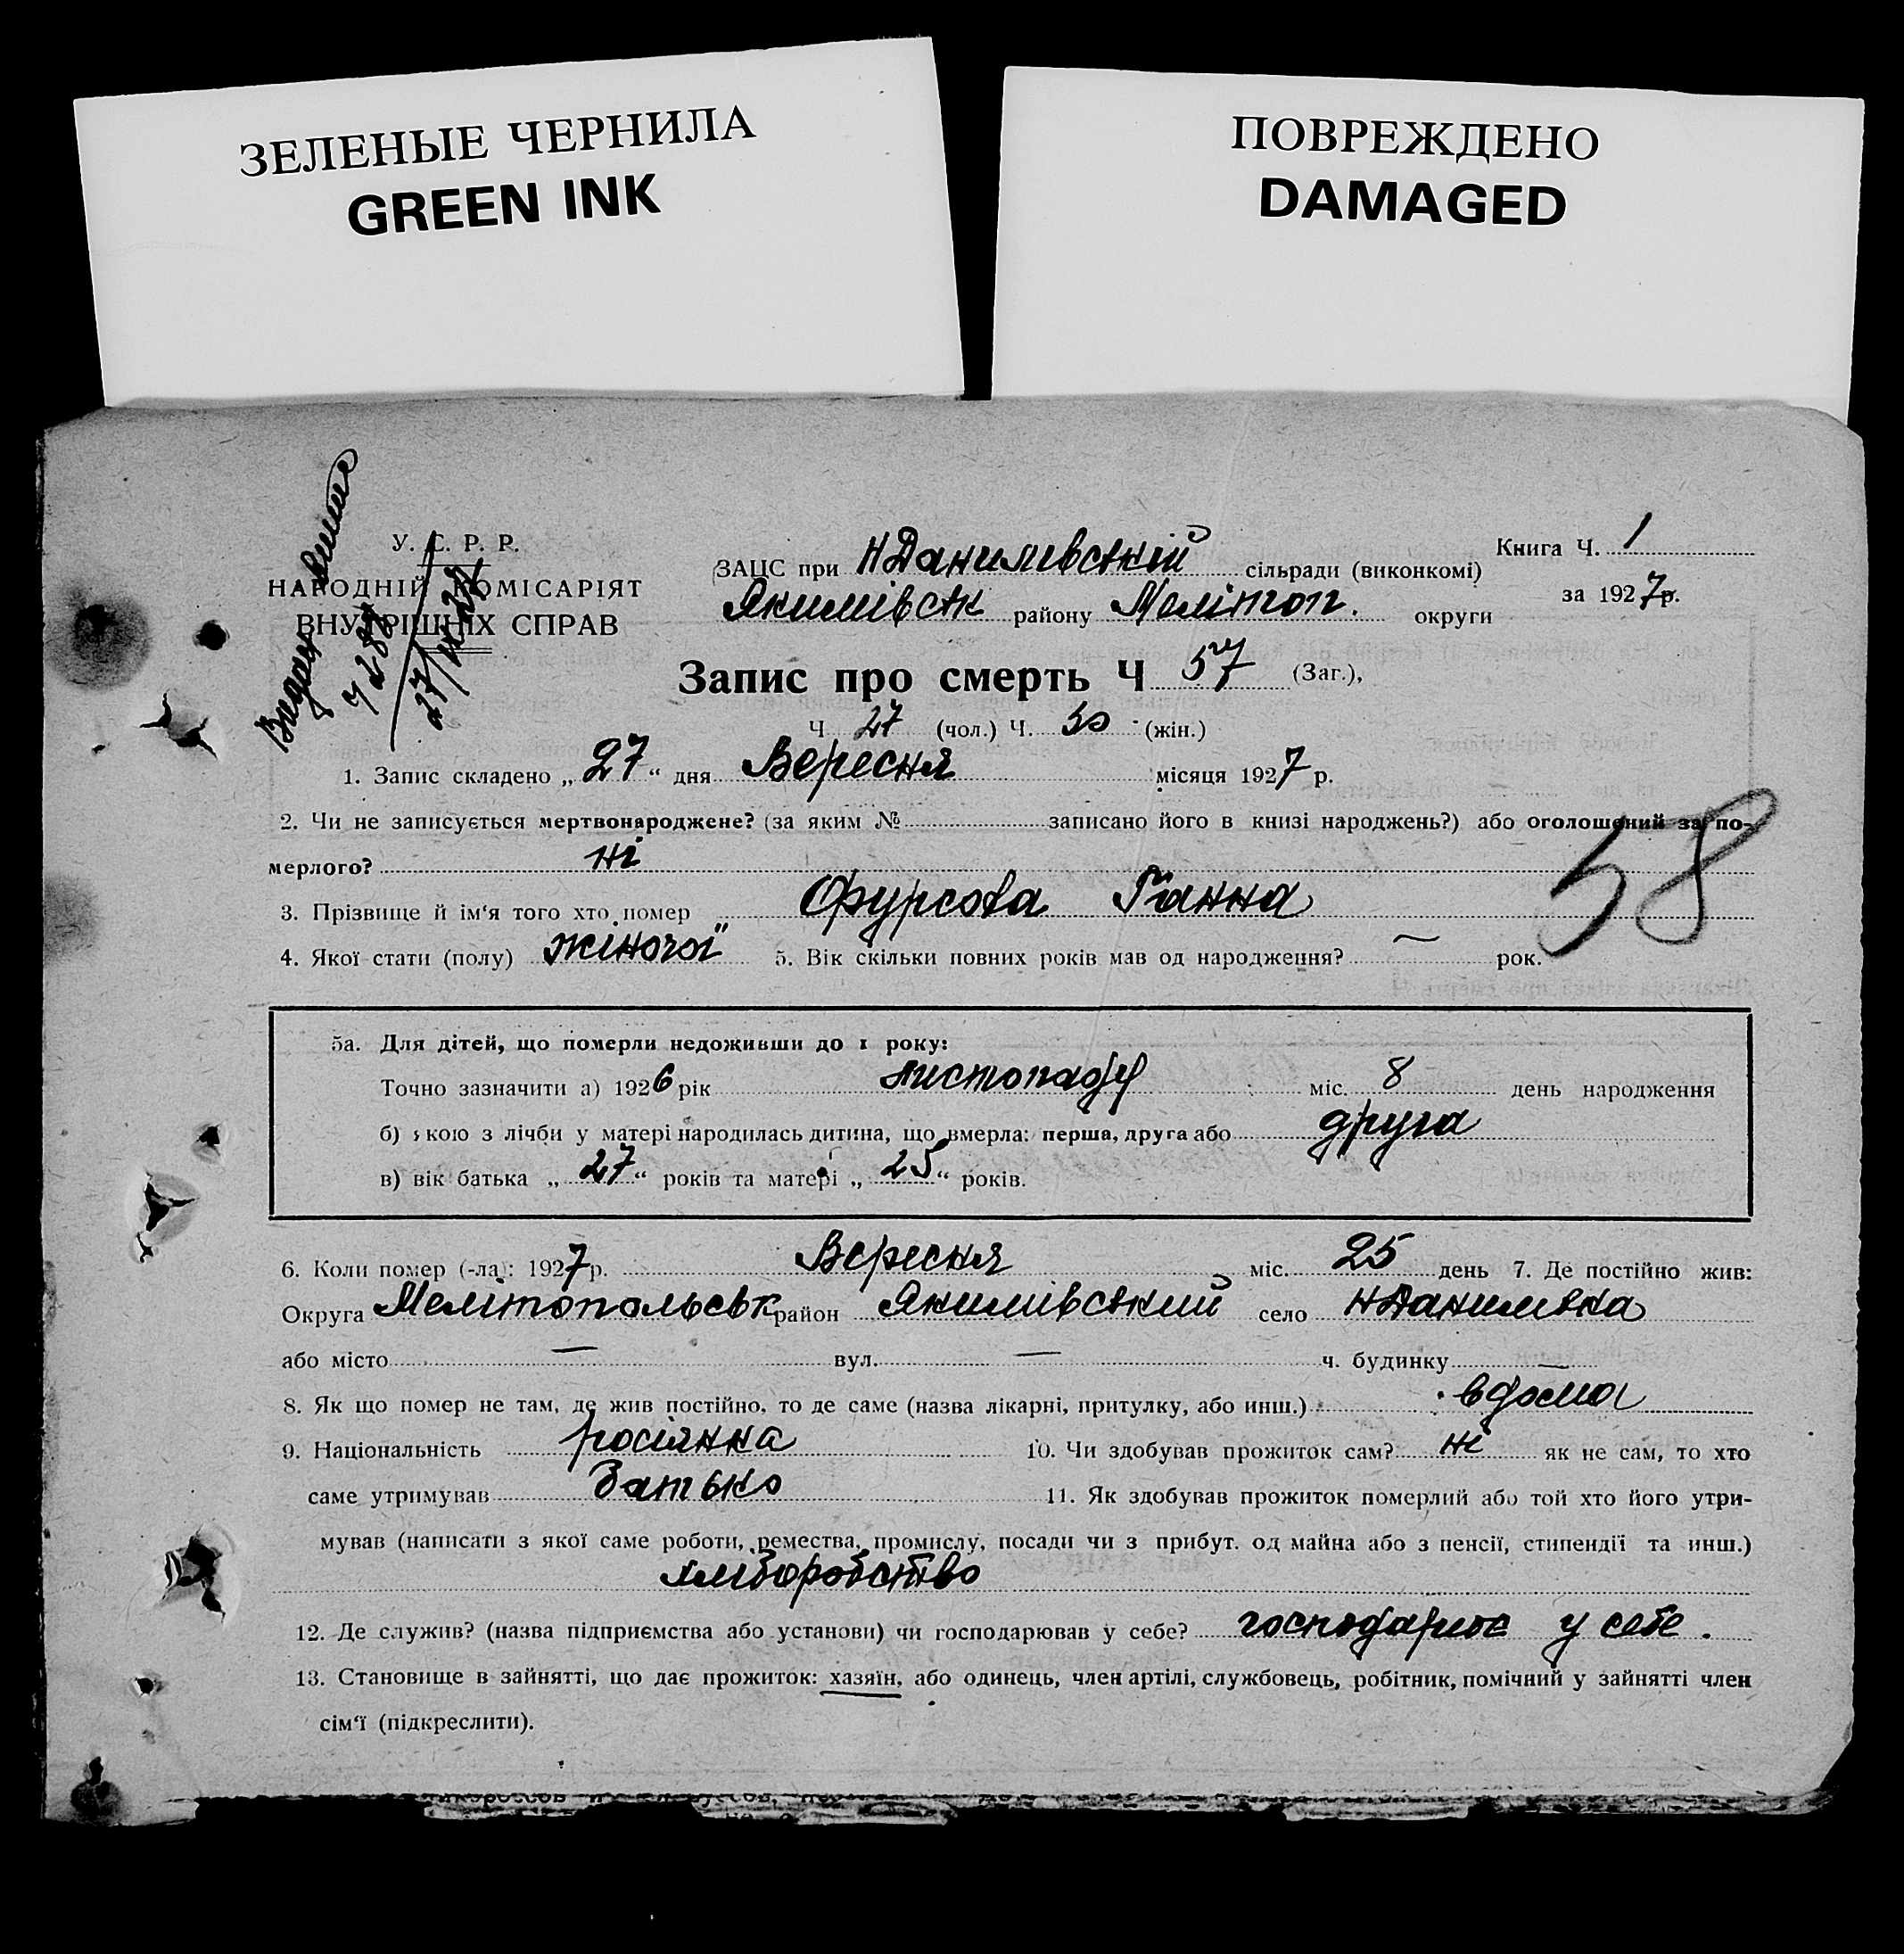 ЗЕЛЕНЫЕ ЧЕРНИЛА
GREEN INK
ПОВРЕЖДЕНО
DAMAGED
У. С. Р. Р.
НАРОДНІЙ КОМІСАРІЯТ
ВНУТРІШНІХ СПРАВ
ЗАЦС при НДанилівській сільради (виконкомі)
Якимівськ району Мелітоп. округи
Книга Ч. 1
за 1927р.
Запис про смерть Ч 57 (Заг.),
Ч 27 (чол.) Ч. 30 (жін.)
1. Запис складено „27“ дня Вересня місяця 1927 р.
2. Чи не записується мертвонароджене? (за яким № записано його в книзі народжень?) або оголошений за по-
мерлого? ні
58
3. Прізвище й ім‘я того хто помер Фурсова Ганна
4. Якої стати (полу) жіночої 5. Вік скільки повних років мав од народження? — рок.
5а. Для дітей, що померли недоживши до 1 року:
Точно зазначити а) 1926 рік листопаду міс. 8 день народження
б) якою з лічби у матері народилась дитина, що вмерла: перша, друга або друга
в) вік батька „27“ років та матері „25“ років.
6. Коли помер (-ла): 1927р. Вересня міс. 25 день 7. Де постійно жив:
Округа Мелітопольськ район Якимівський село НДанилівка
або місто — вул. — ч. будинку —
8. Як що помер не там, де жив постійно, то де саме (назва лікарні, притулку, або инш.) вдома
9. Національність росіянка 10. Чи здобував прожиток сам? ні як не сам, то хто
саме утримував Батько 11. Як здобував прожиток померлий або той хто його утри-
мував (написати з якої саме роботи, ремества, промислу, посади чи з прибут. од майна або з пенсії, стипендії та инш.)
хліборобство
12. Де служив? (назва підприємства або установи) чи господарював у себе? господарює у себе.
13. Становище в зайнятті, що дає прожиток: хазяїн, або одинець, член артілі, службовець, робітник, помічний у зайнятті член
сім‘ї (підкреслити).